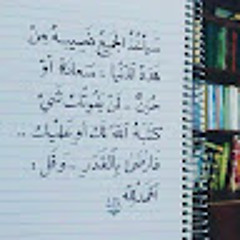 سيأخذ الجميع نصيبه من
هذه الدنيا .. سعادة أو
حزن .. لن يفوتك شيئ
كتبه الله لك أو عليك ..
فارض بالقدر .. وقل :
الحمدلله